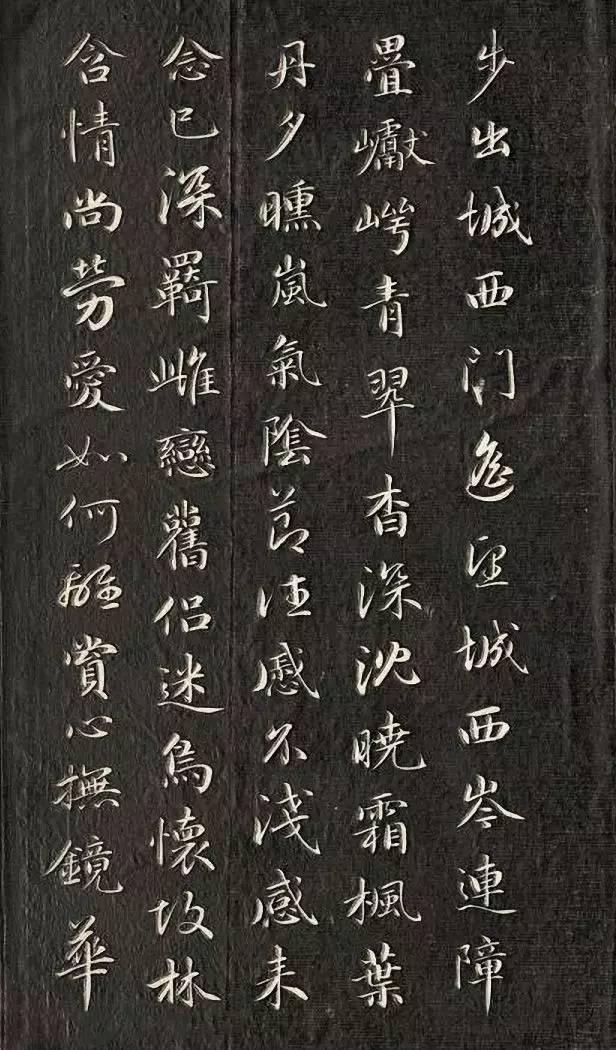 步出城西门遥望城西岑連障
疊巘崿青翠杳深沈曉霜楓葉
丹夕曛嵐氣陰莭往慼不淺感来
念已深羇雌戀舊侣迷鳥懷故林
含情尚劳愛如何離賞心撫鏡華